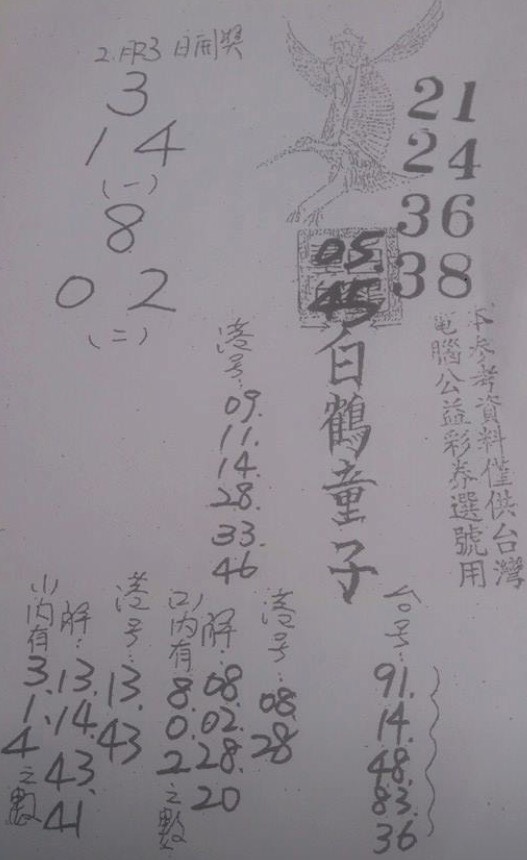 2月3日開獎
3
14
(一)
8
02
(二)
21
24
36
38
05.
45
白鶴童子
本參考資料僅供台灣
電腦公益彩券選號用
港号:
09.
11.
14.
28.
33.
46
台号:
91.
14.
48.
83.
36
港号:
08.
28
解:
08.
02.
28.
20
(2)內有
8.
0.
2
之數
港号:
13.
43
解:
13.
14.
43.
41
(1)內有
3.
1.
4
之數